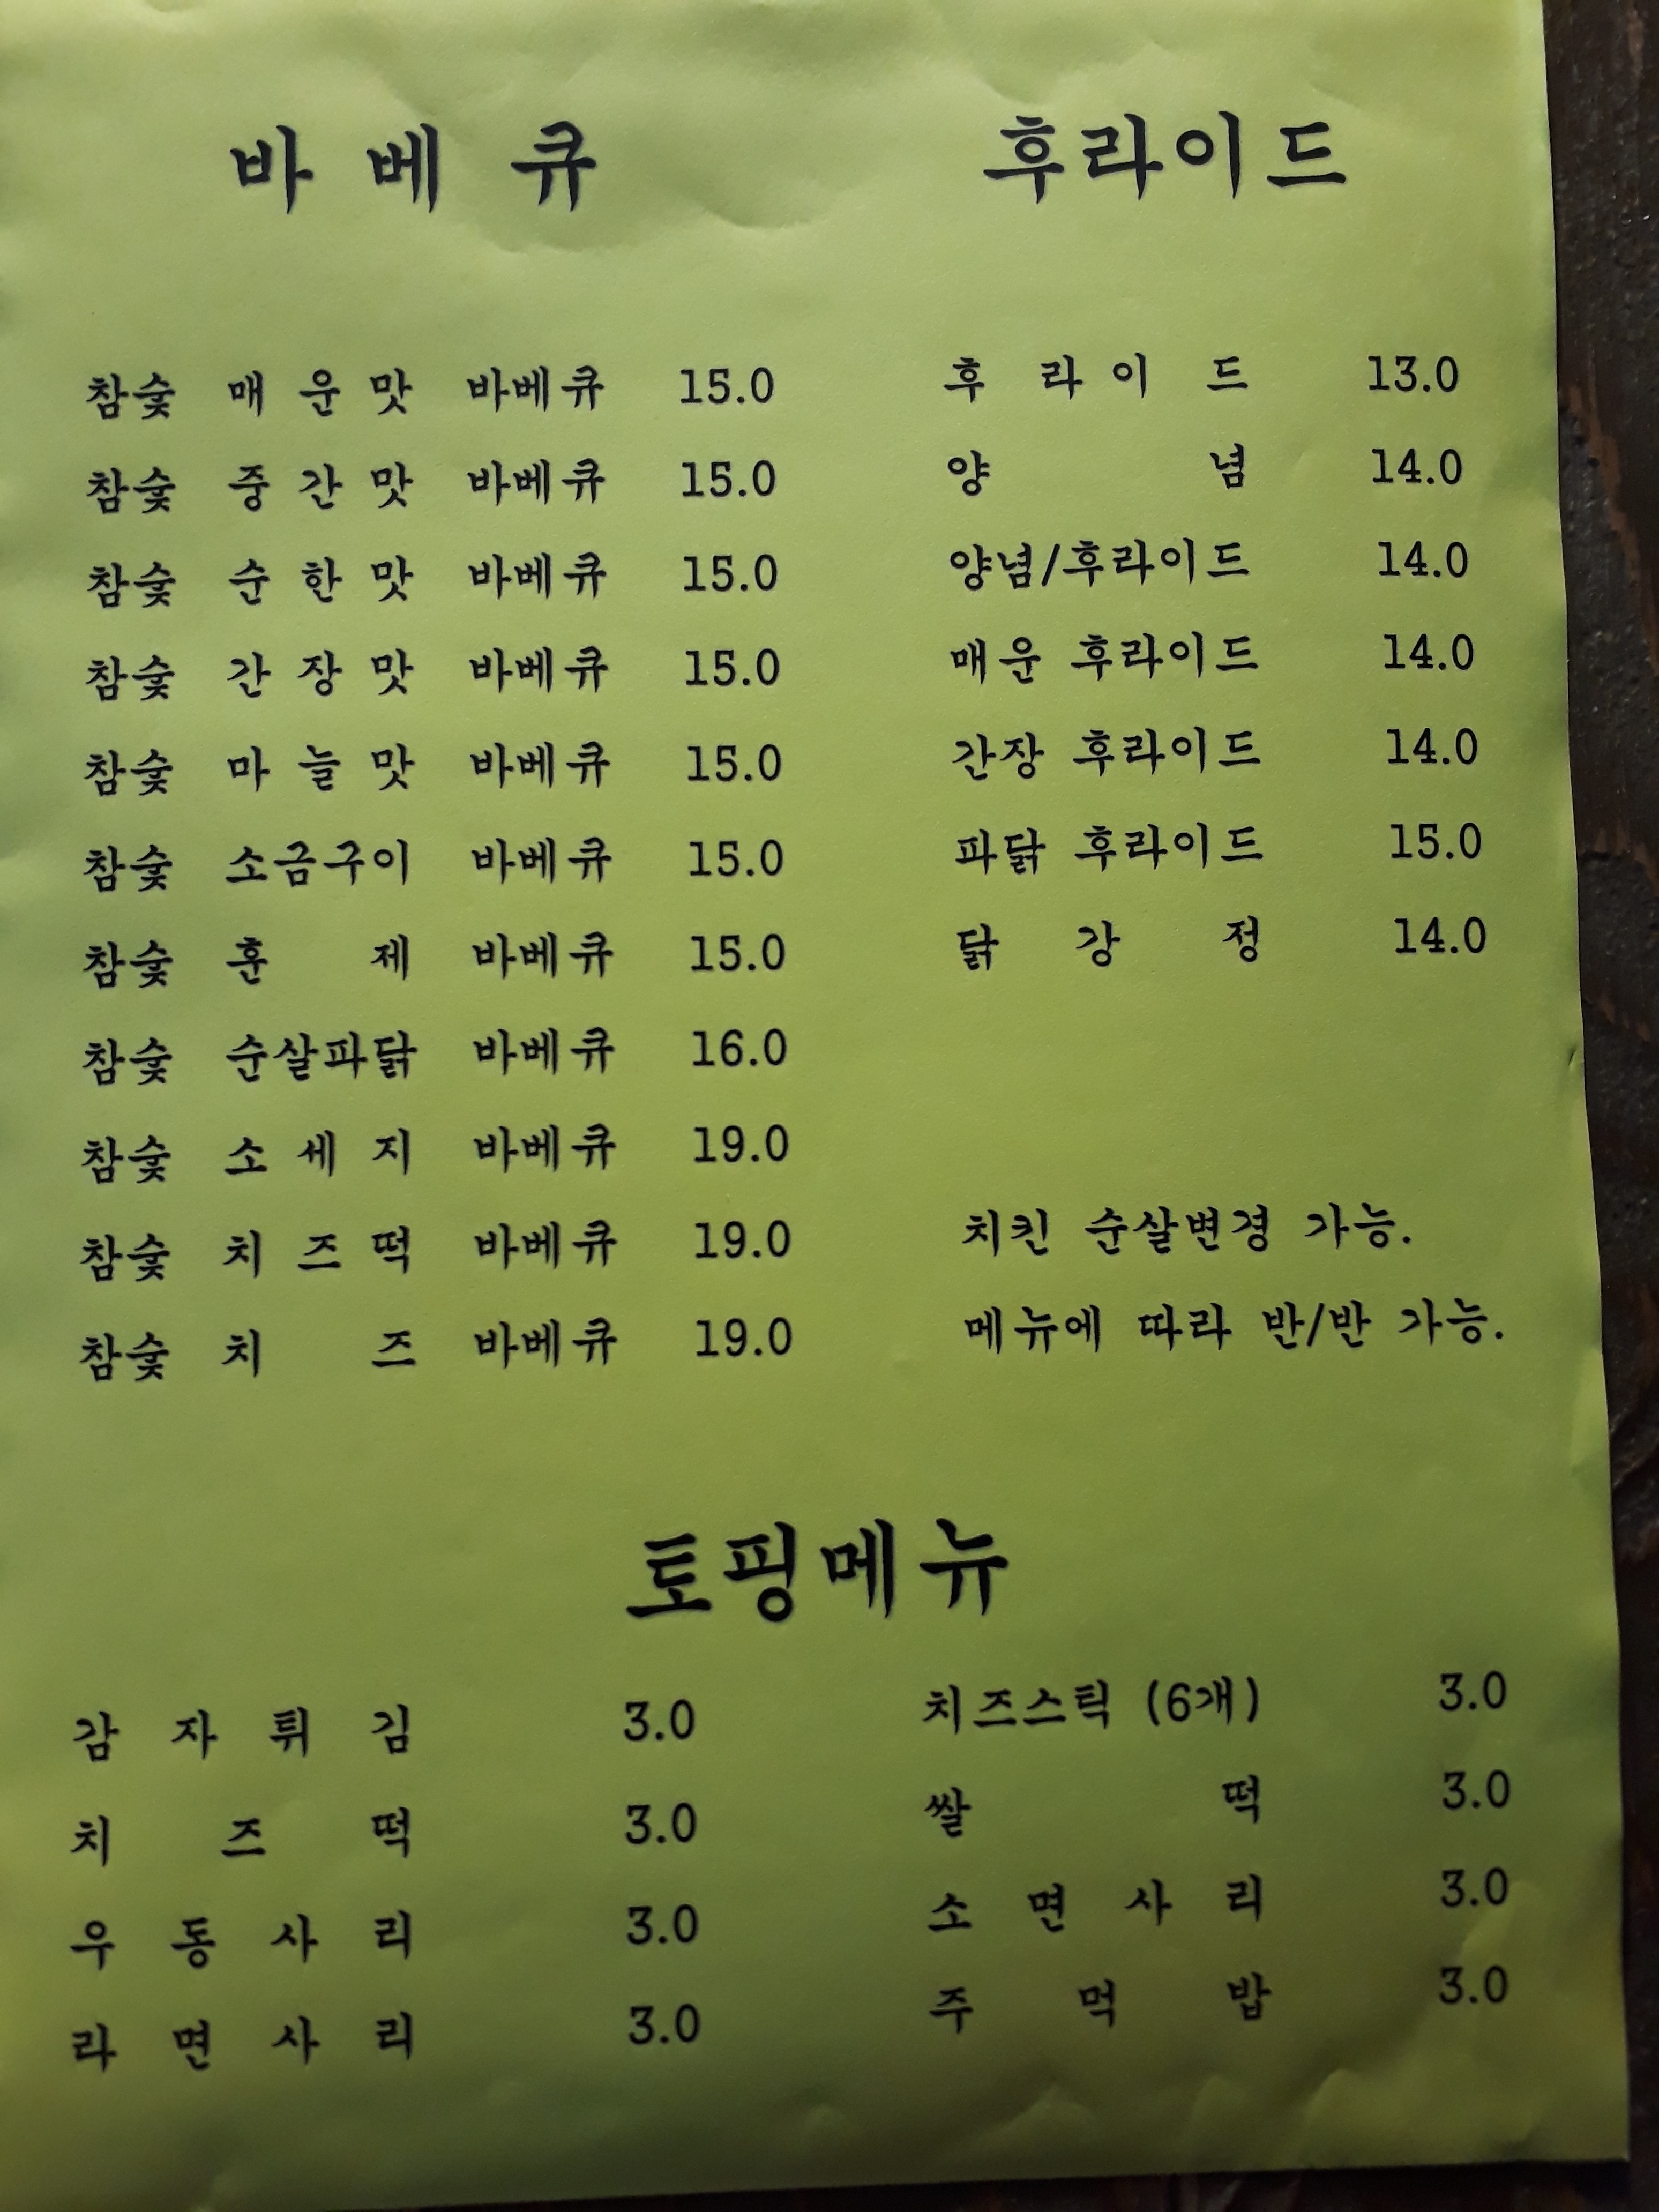 바베큐
참숯 매운맛 바베큐 15.0
참숯 중간맛 바베큐 15.0
참숯 순한맛 바베큐 15.0
참숯 간장맛 바베큐 15.0
참숯 마늘맛 바베큐 15.0
참숯 소금구이 바베큐 15.0
참숯 훈제 바베큐 15.0
참숯 순살파닭 바베큐 16.0
참숯 소세지 바베큐 19.0
참숯 치즈떡 바베큐 19.0
참숯 치즈 바베큐 19.0
후라이드
후라이드 13.0
양념 14.0
양념/후라이드 14.0
매운 후라이드 14.0
간장 후라이드 14.0
파닭 후라이드 15.0
닭강정 14.0
치킨 순살변경 가능.
메뉴에 따라 반/반 가능.
토핑메뉴
감자튀김 3.0
치즈떡 3.0
우동사리 3.0
라면사리 3.0
치즈스틱 (6개) 3.0
쌀떡 3.0
소면사리 3.0
주먹밥 3.0